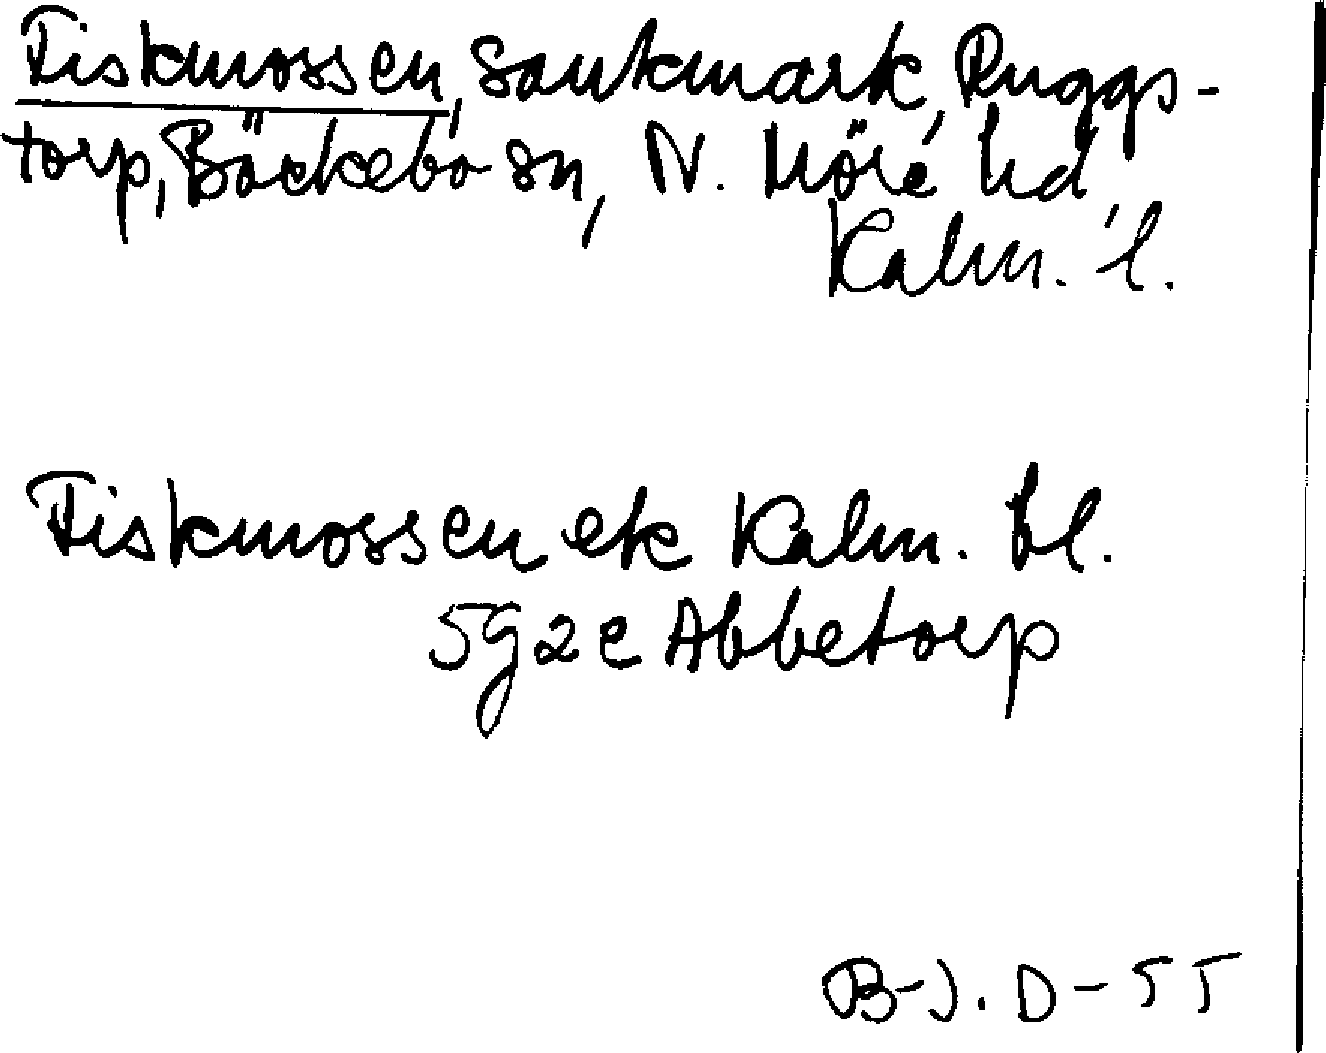 Fiskmossen, sankmark, Ruggs-
torp, Bäckebo sn, N. Möre hd,
Kalm. l.
Fiskmossen ek Kalm. bl.
5g2e Abbetorp
B-J. D-55